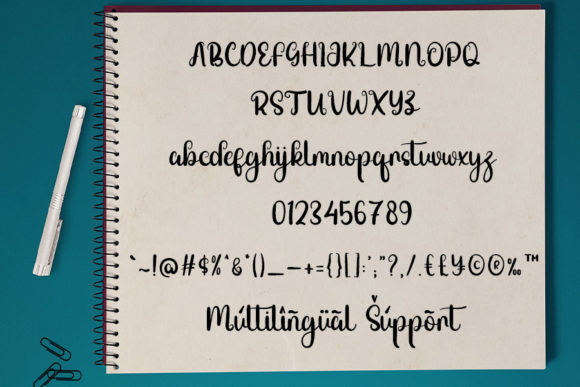 ABCDEFGHIJKLMNOPQ
RSTUVWXYZ
abcdefghijklmnopqrstuvwxyz
0123456789
`~!@#$%^&*()_—+={}[]:';"?,/.€£¥©®‰™
Múltilîñgüãl Šúppõrt